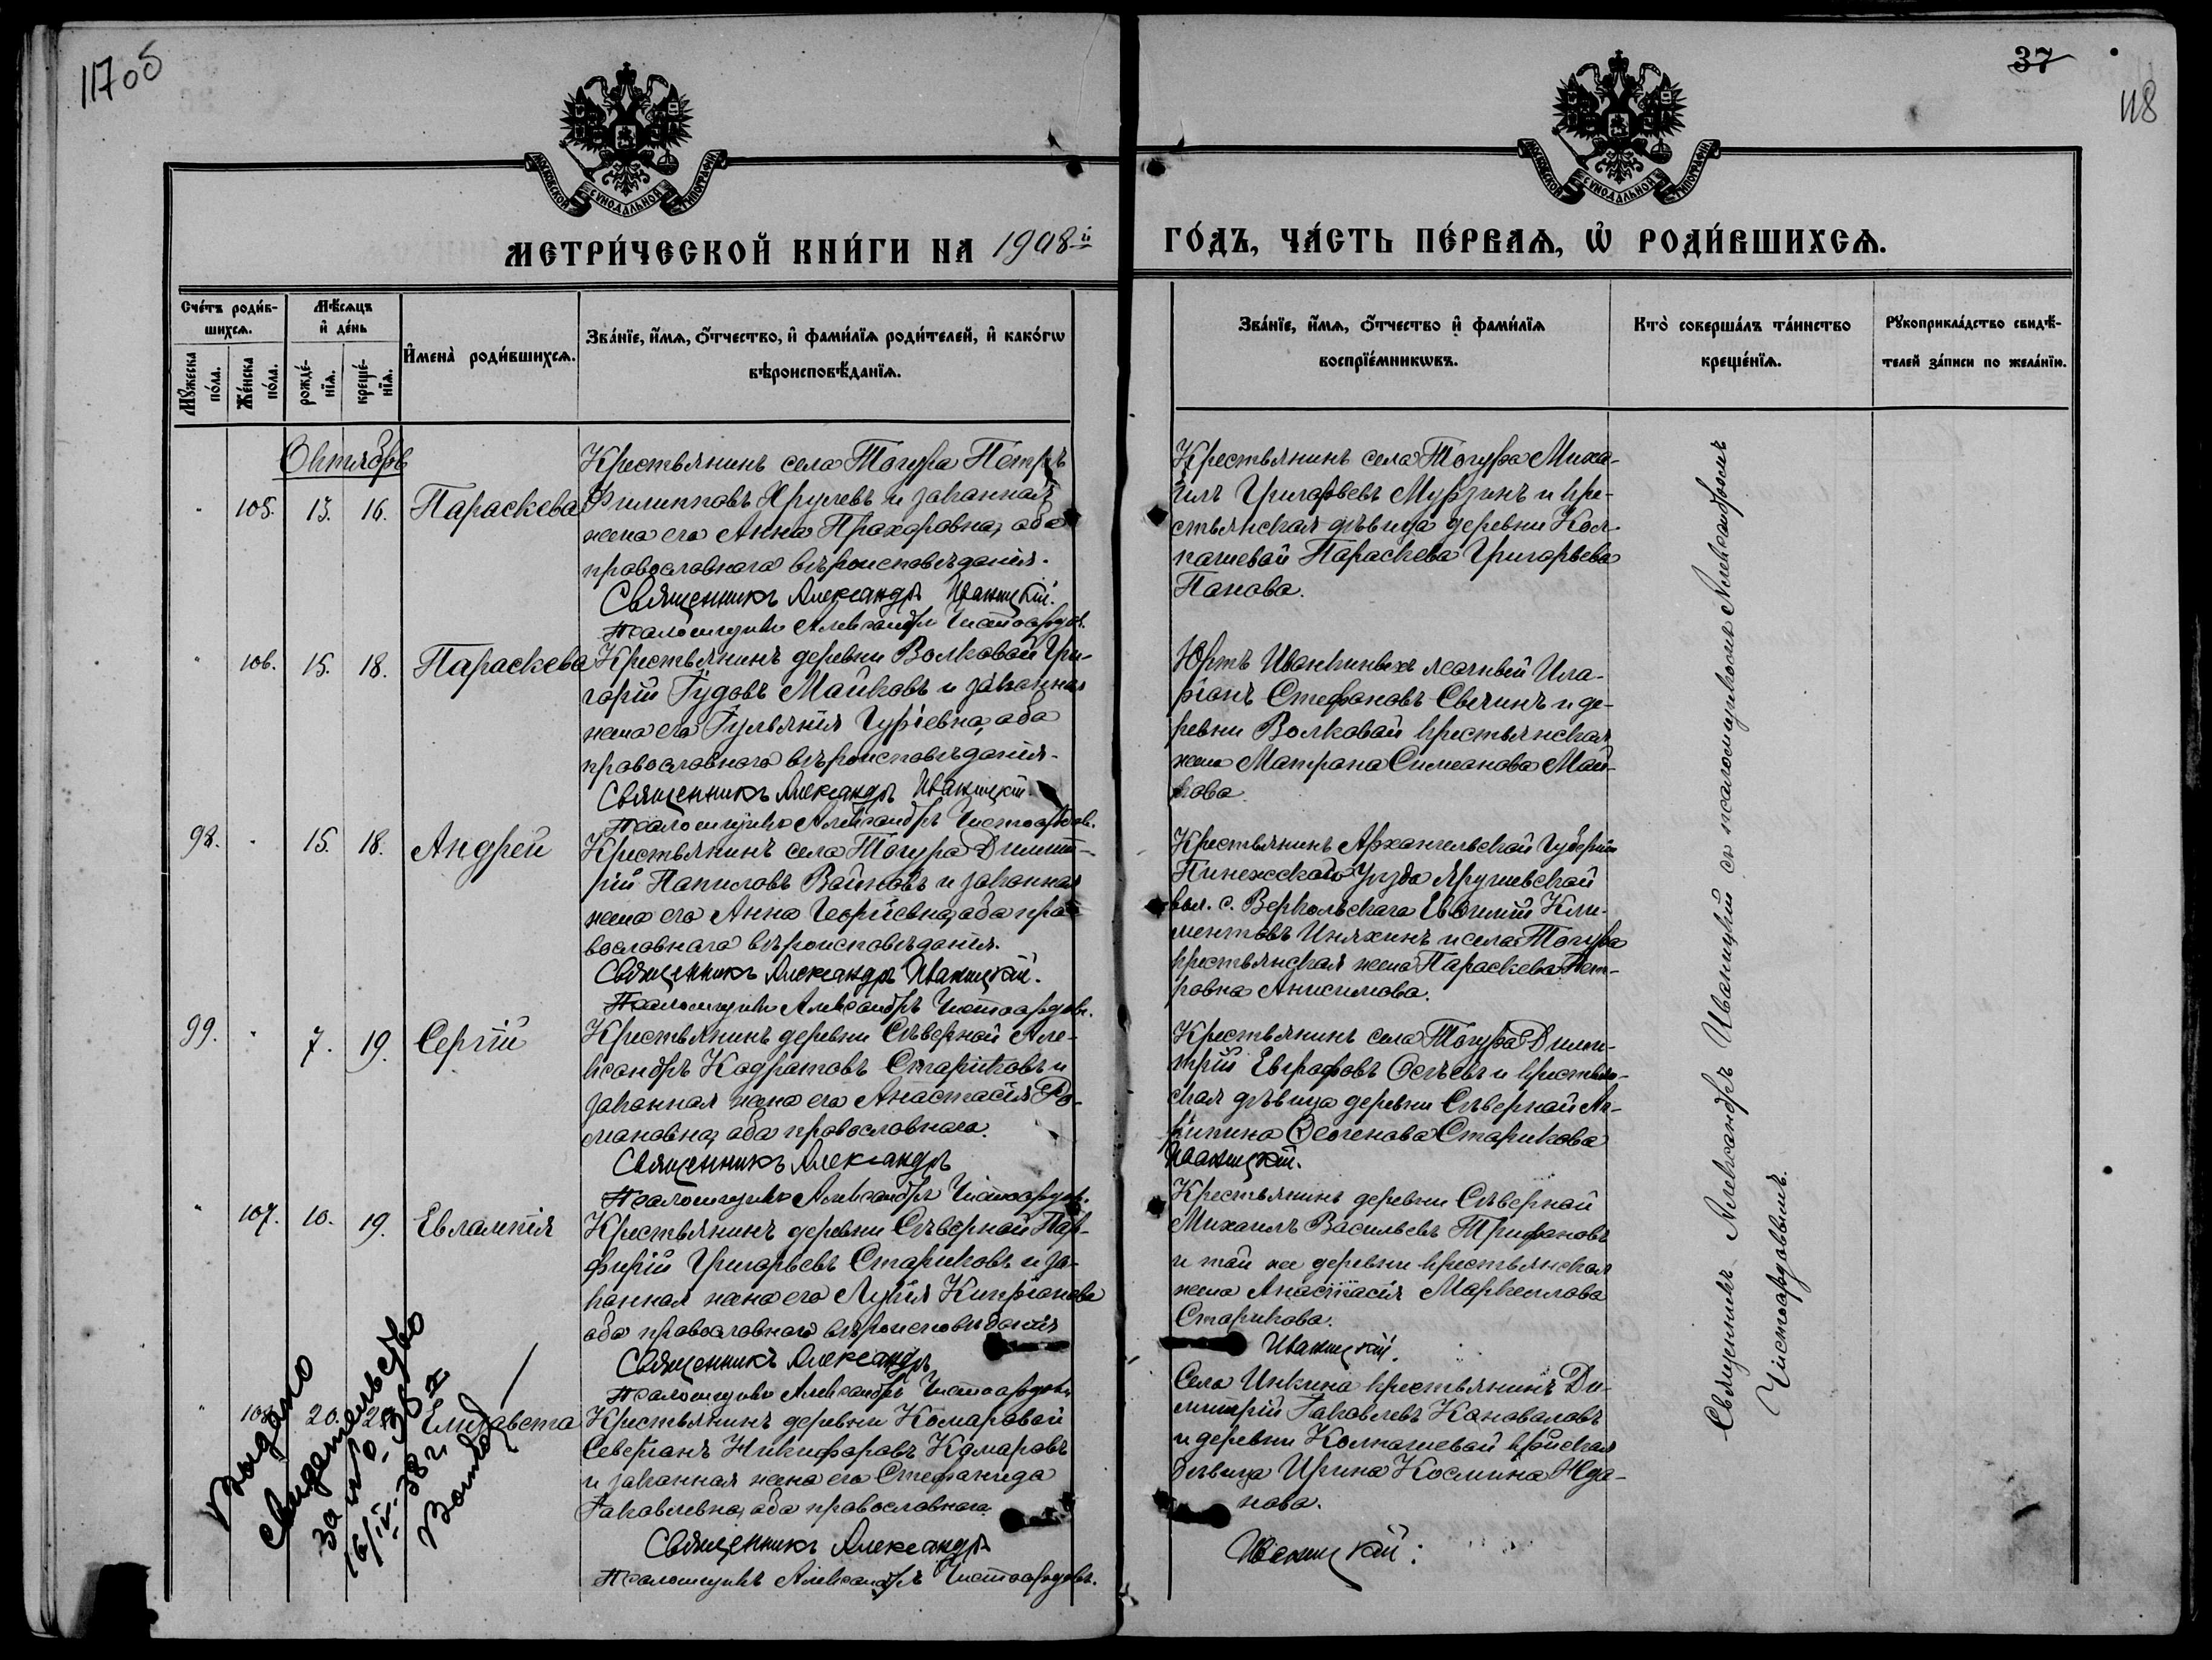 117об
37
118
МОСКОВСКОЙ СѴНОДАЛЬНОЙ ТИПОГРАФІИ
МОСКОВСКОЙ СѴНОДАЛЬНОЙ ТИПОГРАФІИ
МЕТРИ́ЧЕСКОЙ КНИ́ГИ НА 1908-й
ГО́ДЪ, ЧА́СТЬ ПЕ́РВАѦ, Ѽ РОДИ́ВШИХСѦ.
Сче́тъ роди́в-
шихсѧ.
Мꙋ́жеска по́ла.
Же́нска по́ла.
Мѣ́сѧцъ
и҆ де́нь
рожде́-
нїѧ.
креще́-
нїѧ.
И҆мена̀ роди́вшихсѧ.
Зва́нїе, и҆́мѧ, ѻ҆́тчество, и҆ фами́лїѧ роди́телей, и҆ како́гѡ
вѣроисповѣ́данїѧ.
Зва́нїе, и҆́мѧ, ѻ҆́тчество и҆ фами́лїѧ
воспрїе́мникѡвъ.
Кто̀ соверша́лъ та́инство
креще́нїѧ.
Рꙋкоприкла́дство свидѣ́-
телей за́писи по жела́нїю.
Октябрь
105. 13. 16. Параскева
Крестьянинъ села Тогура Петръ
Филипповъ Хрулевъ и законная
жена его Анна Прохоровна, оба
православнаго вѣроисповѣданія.
Священникъ Александръ Иваницкій.
Псаломщикъ Александръ Чистосердовъ.
Крестьянинъ села Тогура Миха-
илъ Григорьевъ Мурзинъ и кре-
стьянская дѣвица деревни Кол-
пашевой Параскева Григорьева
Панова.
106. 15. 18. Параскева
Крестьянинъ деревни Волковой Гри-
горій Іудовъ Майковъ и законная
жена его Іульянія Гуріевна, оба
православнаго вѣроисповѣданія.
Священникъ Александръ Иваницкій.
Псаломщикъ Александръ Чистосердовъ.
Юртъ Иванкиныхъ ясачный Ила-
ріонъ Стефановъ Свечинъ и де-
ревни Волковой крестьянская
жена Матрона Симеонова Май-
кова.
98. 15. 18. Андрей
Крестьянинъ села Тогура Димит-
рій Папиловъ Войновъ и законная
жена его Анна Георгіевна, оба пра-
вославнаго вѣроисповѣданія.
Священникъ Александръ Иваницкій.
Псаломщикъ Александръ Чистосердовъ.
Крестьянинъ Архангельской Губерніи
Пинежскаго Уѣзда
вол. с. Веркольскаго Евѳимій Кли-
ментовъ Иняхинъ и села Тогура
крестьянская жена Параскева Пет-
ровна Анисимова.
99. 7. 19. Сергій
Крестьянинъ деревни Сѣверной Але-
ксандръ Кодратовъ Стариковъ и
законная жена его Анастасія Ро-
мановна, оба православнаго.
Священникъ Александръ
Псаломщикъ Александръ Чистосердовъ.
Крестьянинъ села Тогура Дими-
трій Евграфовъ и крестьян-
ская дѣвица деревни Сѣверной Аг-
Старикова
Иваницкій.
107. 10. 19. Евлампія
Крестьянинъ деревни Сѣверной Пор-
фирій Григорьевъ Стариковъ и за-
конная жена его Лукія Кипріанова
оба православнаго вѣроисповѣданія
Священникъ Александръ
Псаломщикъ Александръ Чистосердовъ
Крестьянинъ деревни Сѣверной
Михаилъ Васильевъ Трифоновъ
и той же деревни крестьянская
жена Анастасія Маркеллова
Старикова.
Иваницкій.
108. 20. Елизавета
Крестьянинъ деревни Комаровой
Северіанъ Никифоровъ Комаровъ
и законная жена его Стефанида
Іаковлевна, оба православнаго.
Священникъ Александръ
Псаломщикъ Александръ Чистосердовъ.
Села Инкина крестьянинъ Ди-
митрій Іаковлевъ Коноваловъ
и деревни Колпашевой кр-нская
дѣвица Ирина Космина Жда-
нова.
Иваницкій.
Выдано
свидетельство
за №
16/IV-38 г.
Священникъ Александръ Иваницкій съ псаломщикомъ Александромъ
Чистосердовымъ.